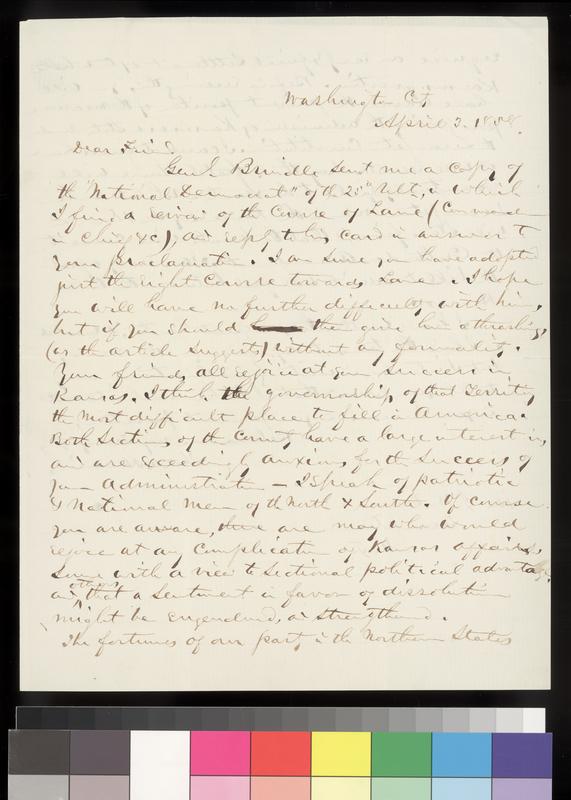 Washington City
April 3. 1858.
Dear Friend
Genl. Brindle sent me a copy of
the "National Democrat" of the 25" Ult, in which
I find a review of the course of Lane (Command
in Chief &c), and reply to his card in answer to
your Proclamation. I am sure you have adopted
just the right course towards Lane. I hope
you will have no further difficulty with him,
but if you should then give him a thrashing,
(as the article suggests) without any formality.
Your friends all rejoice at your success in
Kansas. I think the governorship of that Territy
the most difficult place to fill in America.
Both Sections of the Country have a large interest in,
and are exceedingly anxious for the success of
your Administration - I speak of patriotic
& National men of the North & South. Of course
you are aware, there are many who would
rejoice at any complication of Kansas affairs,
some with a view to sectional political advantage,
and others that a sentiment in favor of dissolution
might be engendered, or strengthened.
The fortunes of our party in the Northern States